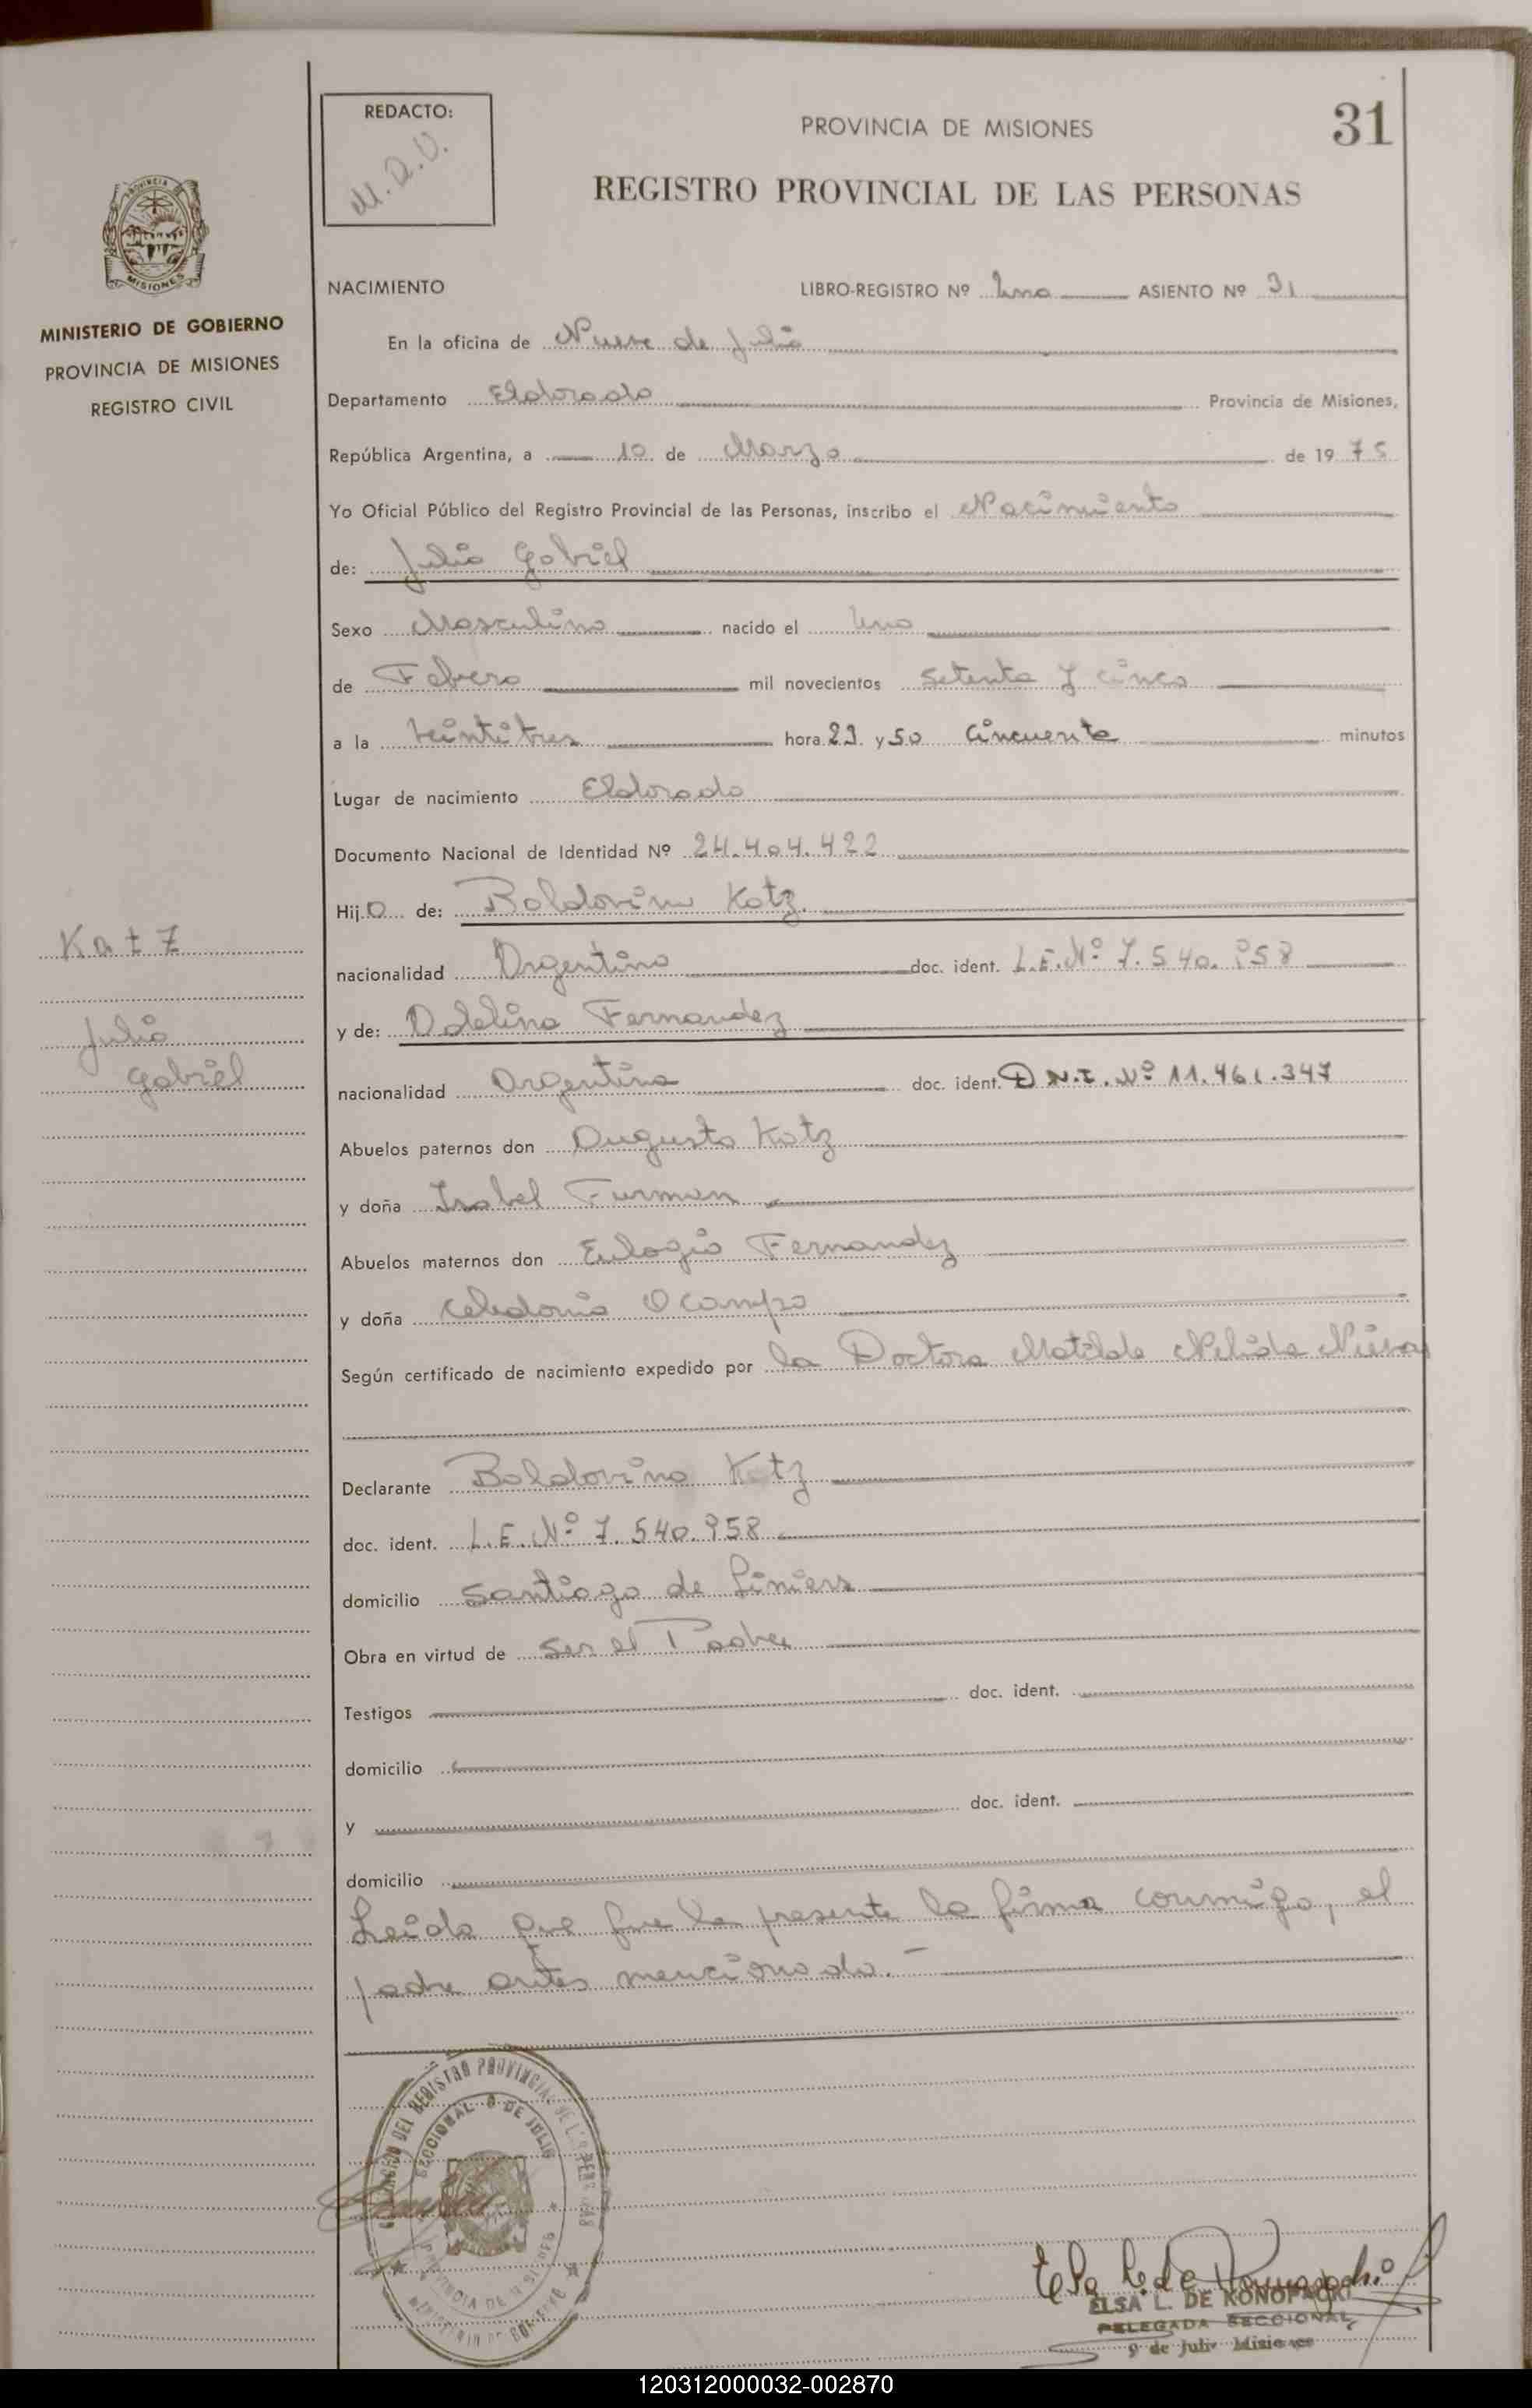 REDACTO:
M.A.V.
PROVINCIA DE MISIONES
31
REGISTRO PROVINCIAL DE LAS PERSONAS
MISIONES
MINISTERIO DE GOBIERNO
PROVINCIA DE MISIONES
REGISTRO CIVIL
NACIMIENTO LIBRO-REGISTRO Nº Uno ASIENTO Nº 31
En la oficina de Nueve de Julio
Departamento Eldorado Provincia de Misiones,
República Argentina, a 10 de Marzo de 1975
Yo Oficial Público del Registro Provincial de las Personas, inscribo el Nacimiento
de: Julio Gabriel
Sexo Masculino nacido el Uno
de Febero mil novecientos setenta y cinco
a la veintitres hora 23 y 50 cincuenta minutos
Lugar de nacimiento Eldorado
Documento Nacional de Identidad Nº 24.404.422
Hijo de: Baldovino Katz
Katz
nacionalidad Argentino doc. ident. L.E.Nº 7.540.958
Julio
y de: Adelina Fernandez
Gabriel
nacionalidad Argentina doc. ident. D.N.I. Nº 11.461.347
Abuelos paternos don Augusto Katz
y doña Isabel Furman
Abuelos maternos don Eulogio Fernandez
y doña Celedonia Ocampo
Según certificado de nacimiento expedido por la Doctora Matilde Nelida
Declarante Baldovino Katz
doc. ident. L.E.Nº 7.540.958
domicilio Santiago de Liniers
Obra en virtud de ser el Padre
Testigos doc. ident.
domicilio
y doc. ident.
domicilio
Leida que fue la presente la firma conmigo, el
padre antes mencionado.-
DEL REGISTRO PROVINCIAL DE LAS PERSONAS
SECCIONAL 9 DE JULIO
PROVINCIA DE MISIONES
MINISTERIO DE GOBIERNO
Elsa L. de Konopacki
ELSA L. DE KONOPACKI
DELEGADA SECCIONAL
9 de Julio Misiones
120312000032-002870